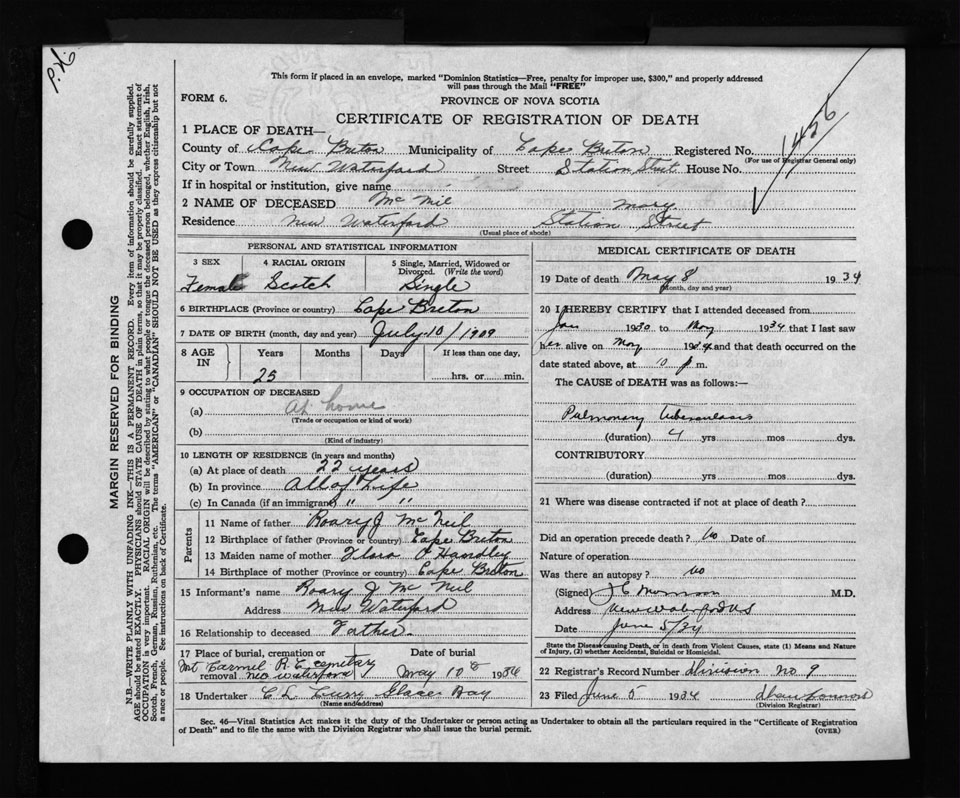 P.X.
This form if placed in an envelope, marked "Dominion Statistics—Free, penalty for improper use, $300," and properly addressed
will pass through the Mail "FREE"
FORM 6.
PROVINCE OF NOVA SCOTIA
CERTIFICATE OF REGISTRATION OF DEATH
1456
1 PLACE OF DEATH—
County of Cape Breton Municipality of Cape Breton Registered No.
(For use of Registrar General only)
City or Town New Waterford Street Station Street House No.
If in hospital or institution, give name
2 NAME OF DECEASED Mc Neil Mary
Residence New Waterford Station Street
(Usual place of abode)
PERSONAL AND STATISTICAL INFORMATION
3 SEX 4 RACIAL ORIGIN 5 Single, Married, Widowed or
Divorced. (Write the word)
Female Scotch Single
6 BIRTHPLACE (Province or country) Cape Breton
7 DATE OF BIRTH (month, day and year) July 10/1909
8 AGE IN Years Months Days If less than one day,
25 hrs. or min.
9 OCCUPATION OF DECEASED
(a) At home
(Trade or occupation or kind of work)
(b)
(Kind of industry)
10 LENGTH OF RESIDENCE (in years and months)
(a) At place of death 22 years
(b) In province All of Life
(c) In Canada (if an immigrant) " "
Parents
11 Name of father Roary J Mc Neil
12 Birthplace of father (Province or country) Cape Breton
13 Maiden name of mother Flora O Handley
14 Birthplace of mother (Province or country) Cape Breton
15 Informant's name Roary J Mc Neil
Address New Waterford
16 Relationship to deceased Father
17 Place of burial, cremation or Date of burial
Mt Carmel R.C. cemetary
removal New Waterford May 10 1934
18 Undertaker C.L. Curry Glace Bay
(Name and address)
MEDICAL CERTIFICATE OF DEATH
19 Date of death May 8 1934
(Month, day and year)
20 I HEREBY CERTIFY that I attended deceased from
Jan 1930 to May 1934 that I last saw
her alive on May 1934 and that death occurred on the
date stated above, at 10 p m.
The CAUSE of DEATH was as follows:—
Pulmonary Tuberculosis
(duration) 4 yrs mos dys.
CONTRIBUTORY
(duration) yrs mos dys.
21 Where was disease contracted if not at place of death?
Did an operation precede death? No Date of
Nature of operation
Was there an autopsy? no
(Signed) J C Morrison M.D.
Address New Waterford NS
Date June 5/34
State the Disease causing Death, or in death from Violent Causes, state (1) Means and Nature of
Injury, (2) whether Accidental, Suicidal or Homicidal.
22 Registrar's Record Number division no 9
23 Filed June 5 1934
(Division Registrar)
Sec. 46—Vital Statistics Act makes it the duty of the Undertaker or person acting as Undertaker to obtain all the particulars required in the "Certificate of Registration
of Death" and to file the same with the Division Registrar who shall issue the burial permit.
(OVER)
MARGIN RESERVED FOR BINDING
N.B.—WRITE PLAINLY WITH UNFADING INK—THIS IS A PERMANENT RECORD. Every item of information should be carefully supplied.
AGE should be stated EXACTLY. PHYSICIANS should STATE CAUSE OF DEATH in plain terms, so that it may be properly classified. Exact statement of
OCCUPATION is very important. RACIAL ORIGIN will be described by stating to what people or tongue the deceased person belonged, whether English, Irish,
Scotch, French, German, Russian, Ruthenian, etc. The terms "AMERICAN" or "CANADIAN" SHOULD NOT BE USED as they express citizenship but not
a race or people. See instructions on back of Certificate.